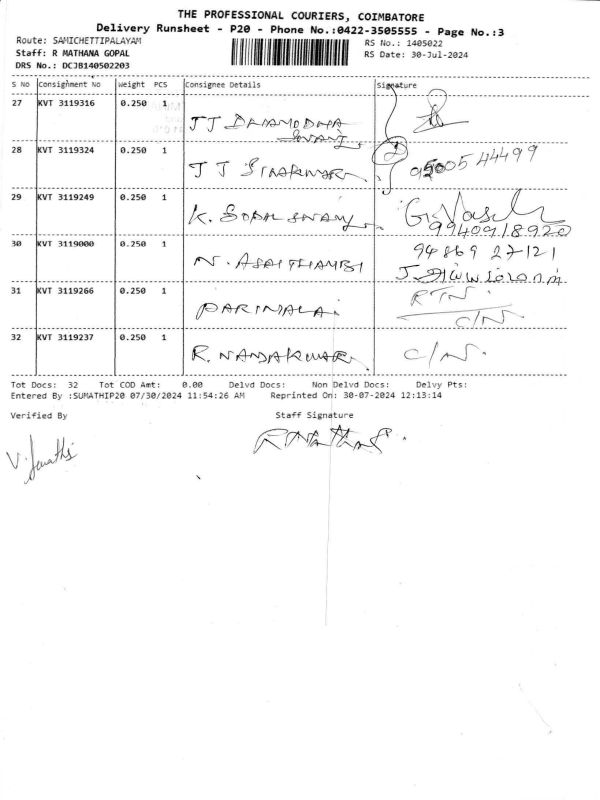 THE PROFESSIONAL COURIERS, COIMBATORE
Delivery Runsheet - P20 - Phone No.:0422-3505555 - Page No.:3
Route: SAMICHETTIPALAYAM RS No.: 1405022
Staff: R MATHANA GOPAL RS Date: 30-Jul-2024
DRS No.: DCJB140502203
S No Consignment No Weight PCS Consignee Details Signature
27 KVT 3119316 0.250 1 JJ DHAMODHA
SWAMJ
28 KVT 3119324 0.250 1 J J SIVAKUMAR 9500544499
29 KVT 3119249 0.250 1 K. GOPAL SWAMY G. Vasuk
9940918920
30 KVT 3119000 0.250 1 N. ASAITHAMBI 94869 27121
31 KVT 3119266 0.250 1 PARIMALA. RTN.
C/N.
32 KVT 3119237 0.250 1 R. NANDAKUMAR. C/N.
Tot Docs: 32 Tot COD Amt: 0.00 Delvd Docs: Non Delvd Docs: Delvy Pts:
Entered By :SUMATHIP20 07/30/2024 11:54:26 AM Reprinted On: 30-07-2024 12:13:14
Verified By Staff Signature
V. Sumathi